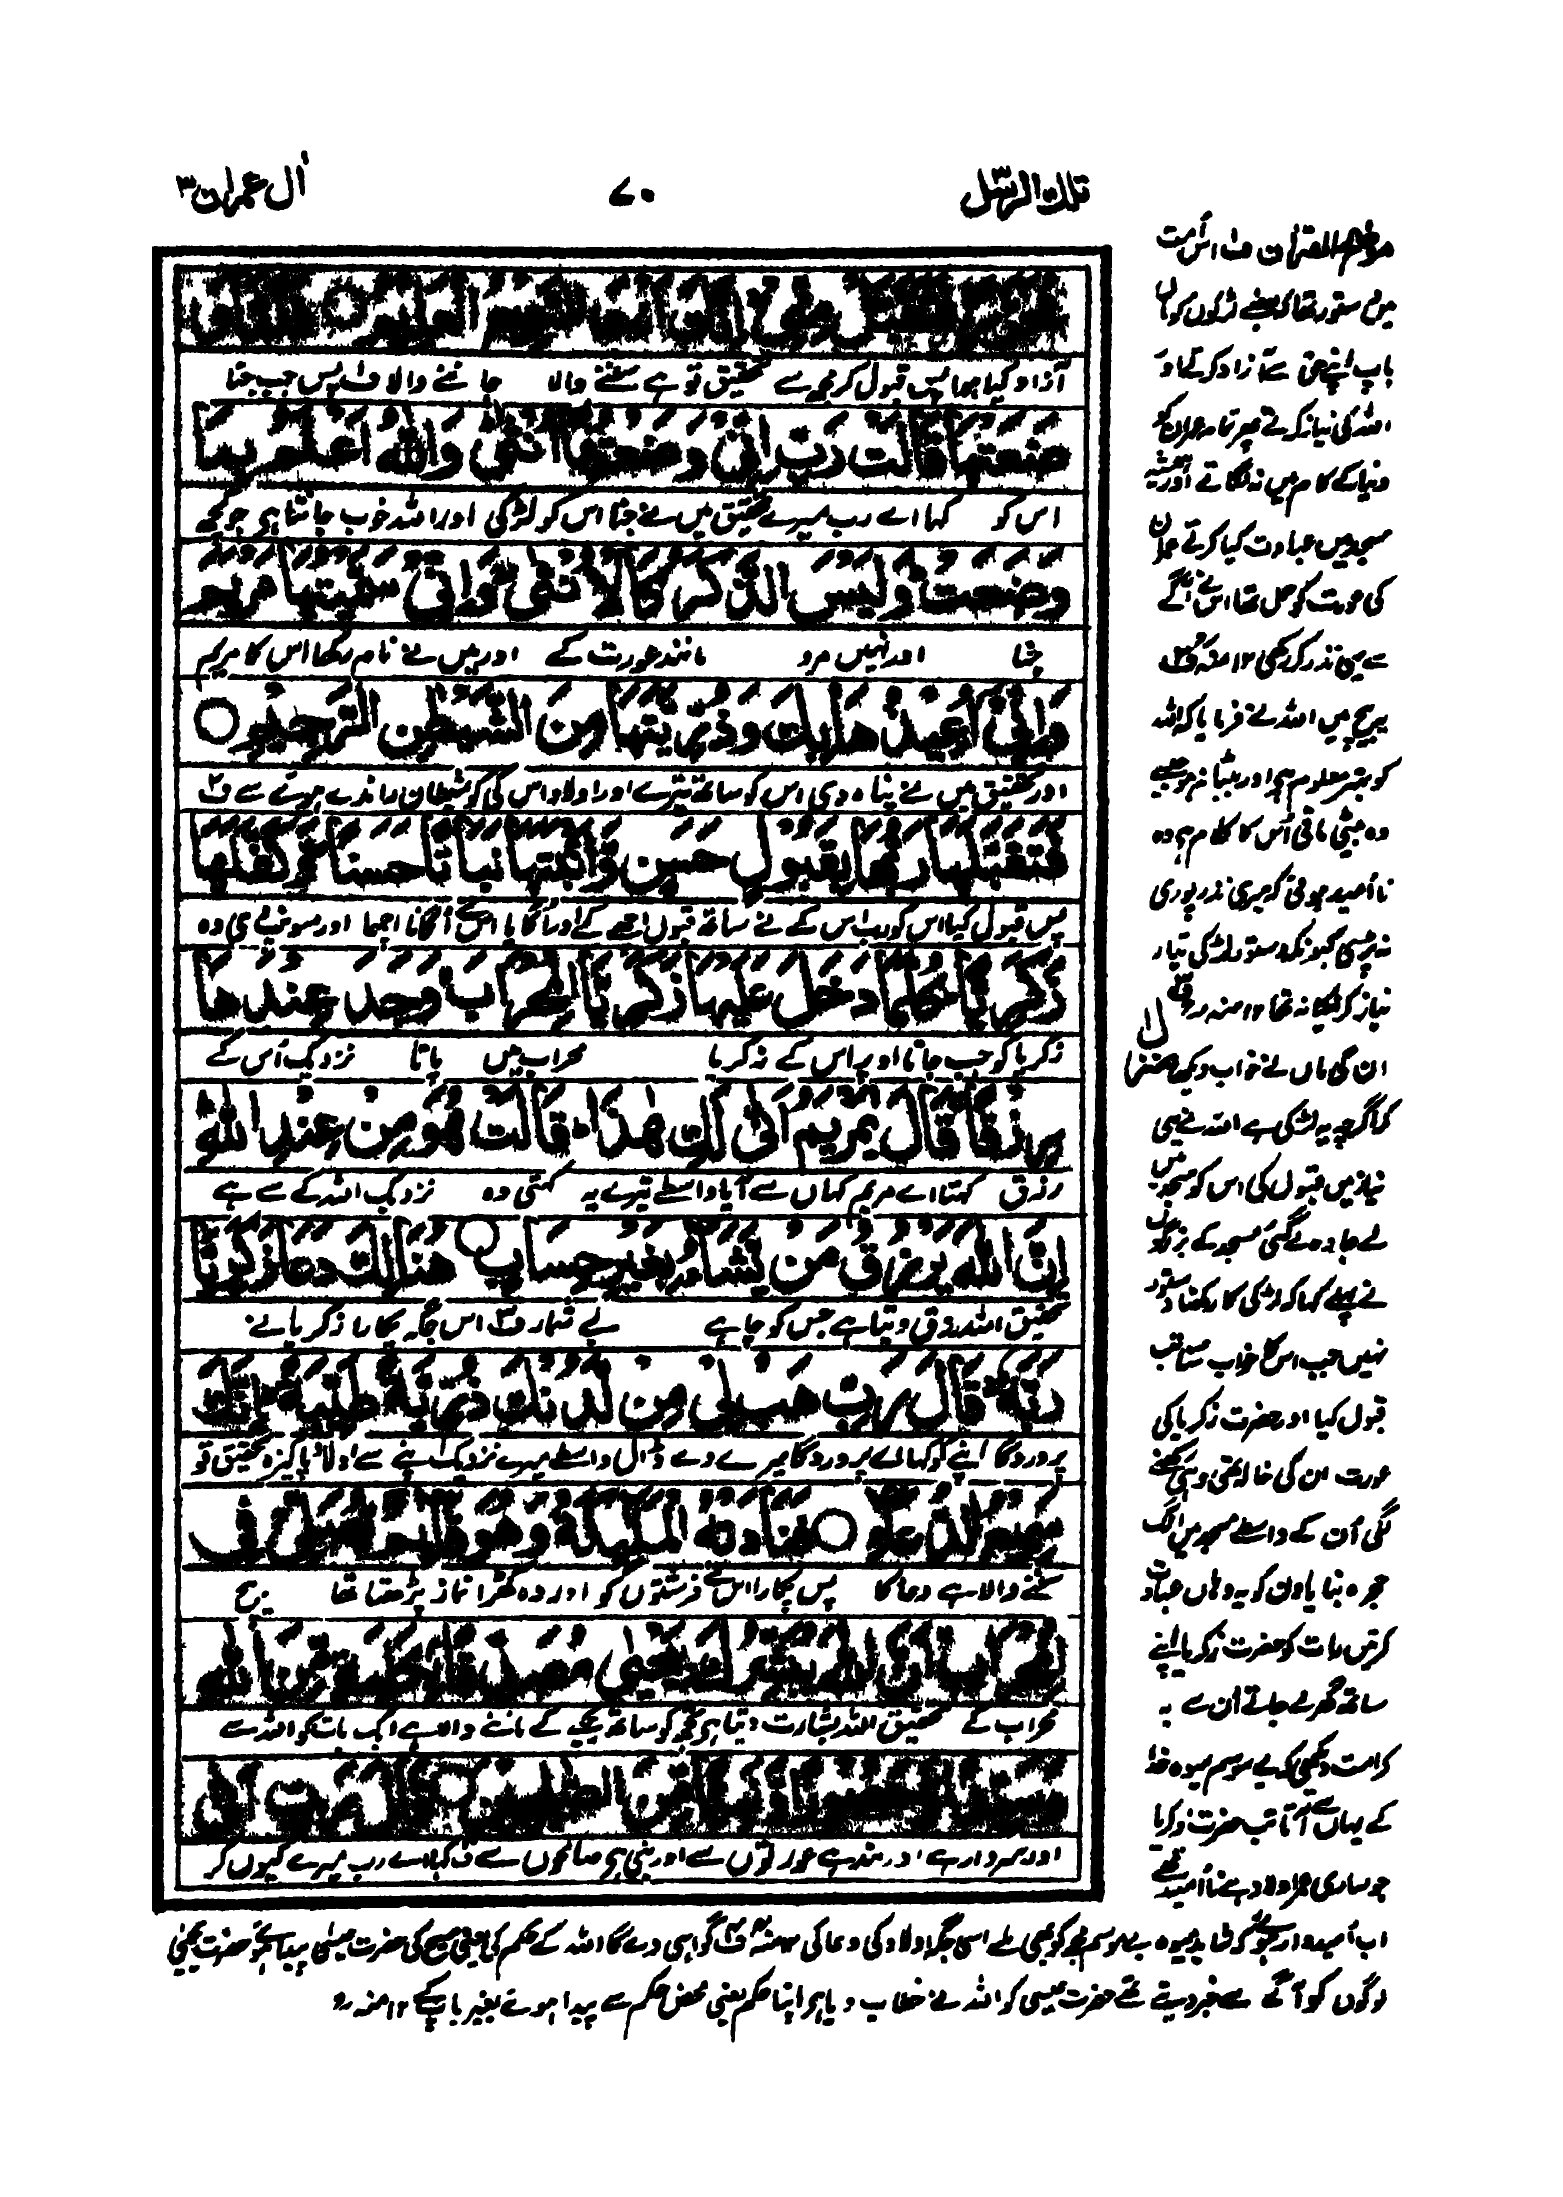 تلك الرسل ٣
٧٠
اٰل عمران ٣
اٰزاد کیا ہوا پس قبول کر مجھ سے تحقیق تو ہے سننے والا جاننے والا ف پس جب جنا
ضعتها قالت رب انی وضعتها انثی والله اعلم بما
اس کو کہا اے رب میرے تحقیق میں نے جنا اس کو لڑکی اور اللہ خوب جانتا ہی جو کچھ
وضعت ولیس الذكر كالانثی وانی سمیتها مریم
جنا اور نہیں مرد مانند عورت کے اور میں نے نام رکھا اس کا مریم
وانی اعیذها بك وذریتها من الشیطن الرجیم ○
اور تحقیق میں نے پناہ دی اس کو ساتھ تیرے اور اولاد اس کی کو شیطان راندے ہوئے سے ف
فتقبلها ربها بقبول حسن وانبتها نباتا حسنا وكفلها
پس قبول کیا اس کو رب اس کے نے ساتھ قبول اچھے کے اور اگایا اس کو اگانا اچھا اور سونپی دہ
زكریا كلما دخل علیها زكریا المحراب وجد عندها
زکریا کو جب جاتا اوپر اس کے زکریا محراب میں پاتا نزدیک اُس کے
رزقا قال یمریم انی لك هذا قالت هو من عند الله
رزق کہتا اے مریم کہاں سے آیا واسطے تیرے یہ کہتی وہ نزدیک اللہ کے سے ہے
ان الله یرزق من یشاء بغیر حساب ○ هنالك دعا زكریا
تحقیق اللہ رزق دیتا ہے جس کو چاہے بے شمار ف اس جگہ پکارا زکریا نے
ربه قال رب هب لی من لدنك ذریة طیبة انك
پروردگار اپنے کو کہا اے پروردگار میرے دے ڈال واسطے میرے نزدیک اپنے سے اولاد پاکیزہ تحقیق تو
سمیع الدعاء ○ فنادته الملئكة وهو قائم یصلی فی
سننے والا ہے دعا کا پس پکارا اس کے فرشتوں کو اور وہ کھڑا نماز پڑھتا تھا بیچ
المحراب ان الله یبشرك بیحیی مصدقا بكلمة من الله
محراب کے تحقیق اللہ بشارت دیتا ہی تجھ کو ساتھ یحیی کے ماننے والا ہے ایک بات کو اللہ سے
اور سردار ہے اور بند ہے عورتوں سے اور نبی ہی صالحوں سے ف کہا اے رب میرے کیوں کر
موضح القران ف اس اُمت
میں دستور تھا کہ بعضے لڑکوں کو ماں
باپ اپنے حق سے آزاد کرتے اور
اللہ کی نیاز کرتے پھر تمام عمران کو
دنیا کے کام میں نہ لگاتے اور ہمیشہ
مسجد میں عبادت کیا کرتے عمران
کی عورت کو حمل تھا اس نے آگے
سے یہی نذر کر رکھی ۱۲ منہ ف
بیچ میں اللہ نے فرمایا کہ اللہ
کو بہتر معلوم ہی اور بیٹا نہ ہو جیسے
وہ بیٹی باقی اُس کا کلام ہی وہ
نا اُمید ہوئی کہ میری نذر پوری
نہ پڑی کیونکہ دستور لڑکی تیار
نیاز کرنیکا نہ تھا ۱۲ منہ رہ ف
ان کی ماں نے خواب دیکھا
کہ اگرچہ یہ لڑکی ہے اللہ نے یہی
نیاز میں قبول کی اس کو مسجد میں
لے جا وہ لے گئی مسجد کے بزرگوں
نے پہلے کہا کہ لڑکی کا رکھنا دستور
نہیں جب اس کا خواب سنا تب
قبول کیا اور حضرت زکریا کی
عورت ان کی خالہ تھی وہی رکھنے
لگی اُن کے واسطے مسجد میں الگ
حجرہ بنایا دن کو یہ وہاں عبادت
کرتیں رات کو حضرت زکریا اپنے
ساتھ گھر لے جاتے اُن سے یہ
کرامت دیکھی کہ بے موسم میوہ خدا
کے یہاں سے آتا تب حضرت زکریا
جو ساری عمر اولاد سے نا اُمید تھے
اب اُمیدوار ہوئے کہ شاید میوہ بے موسم مجھ کو بھی ملے اسی جگہ اولاد کی دعا کی ۱۲ منہ ف گواہی دے گا اللہ کے حکم کی یعنی مسیح کی حضرت عیسٰی پیدا ہوئے حضرت یحییٰ
لوگوں کو آگے سے خبر دیتے تھے حضرت عیسی کو اللہ نے خطاب دیا ہی اپنا حکم یعنی محض حکم سے پیدا ہوتے بغیر باپ کے ۱۲ منہ رہ